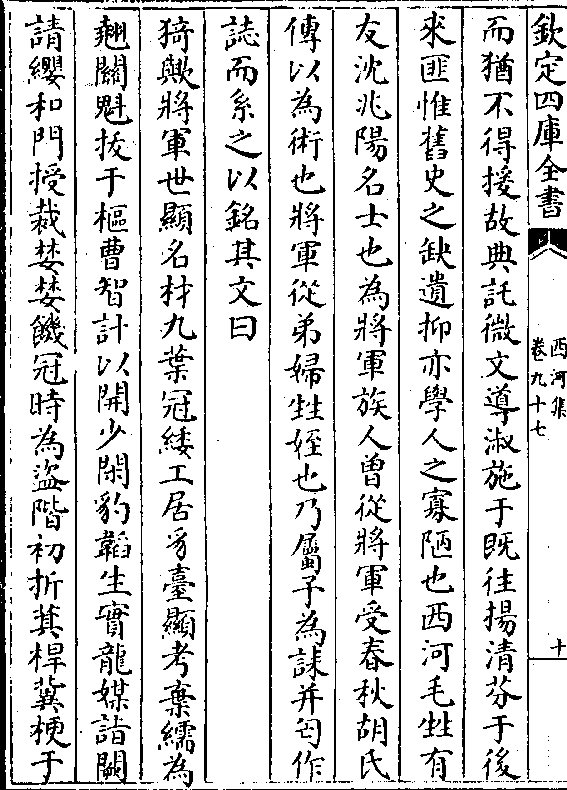 欽定四庫全書
西河集
卷九十七
十
而猶不得援故典託微文導淑施于既往揚清芬于後
來匪惟舊史之缺遺抑亦學人之寡陋也西河毛甡有
友沈兆陽名士也為將軍族人曾從將軍受春秋胡氏
傳以為術也將軍從弟婦甡姪也乃屬予為誄并匄作
誌而系之以銘其文曰
猗歟將軍世顯名材九葉冠緌工居豸臺顯考棄繻為
翹關魁拔于樞曹智計以開少閑豹韜生實龍媒詣闕
請纓和門授裁婪婪饑冠時為盜階初折萁桿冀梗于